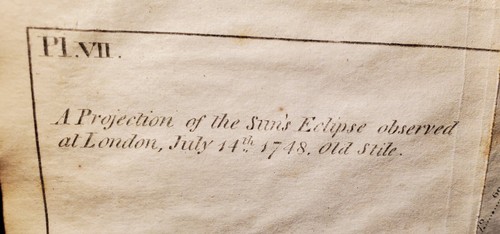 Pl.VII.
A Projection of the Sun's Eclipse observed
at London, July 14th. 1748. Old Stile.